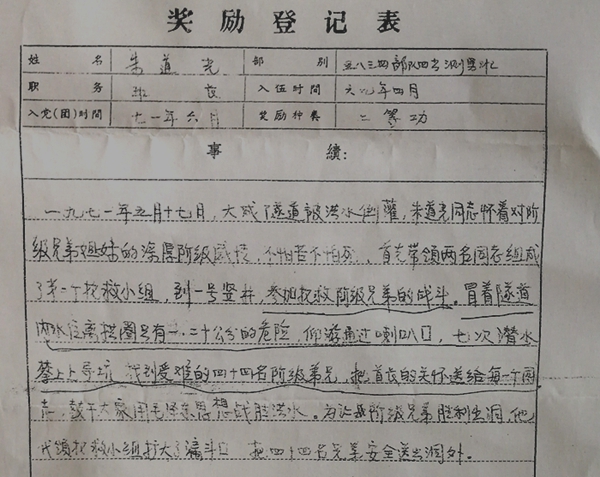 奖励登记表
姓名 朱道光 部别 五八三四部队四支测男北
职务 班长 入伍时间 六九年四月
入党(团)时间 七一年六月 奖励种类 二等功
事绩:
一九七一年五月十七日,大成了隧道被洪水倒灌,朱道光同志怀着对阶
级兄弟姐妹的深厚阶级感情,不怕苦不怕死,首先带领两名同志组成
了第一个抗救小组,到一号竖井,参加抗救阶级兄弟的战斗。冒着隧道
内水位离拱圈只有一、二十公分的危险,仰游通过喇叭口,七次潜水
攀上上导坑,找到受难的四十四名阶级弟兄,把首长的关怀送给每一个同
志,鼓午大家用毛泽东思想战胜洪水。为让阶级兄弟胜利出洞,他
代领抗救小组扩大了漏斗口,把四十四名兄弟安全送出洞外。